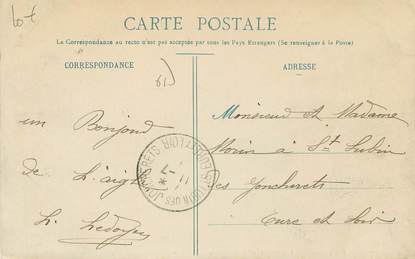 lot
CARTE POSTALE
La Correspondance au recto n'est pas acceptée par tous les Pays Etrangers (Se renseigner à la Poste)
CORRESPONDANCE
ADRESSE
61
un Bonjour
de L'aigle
Monsieur et Madame
Morin à St Lubin
des Joncherets
Eure et Loir